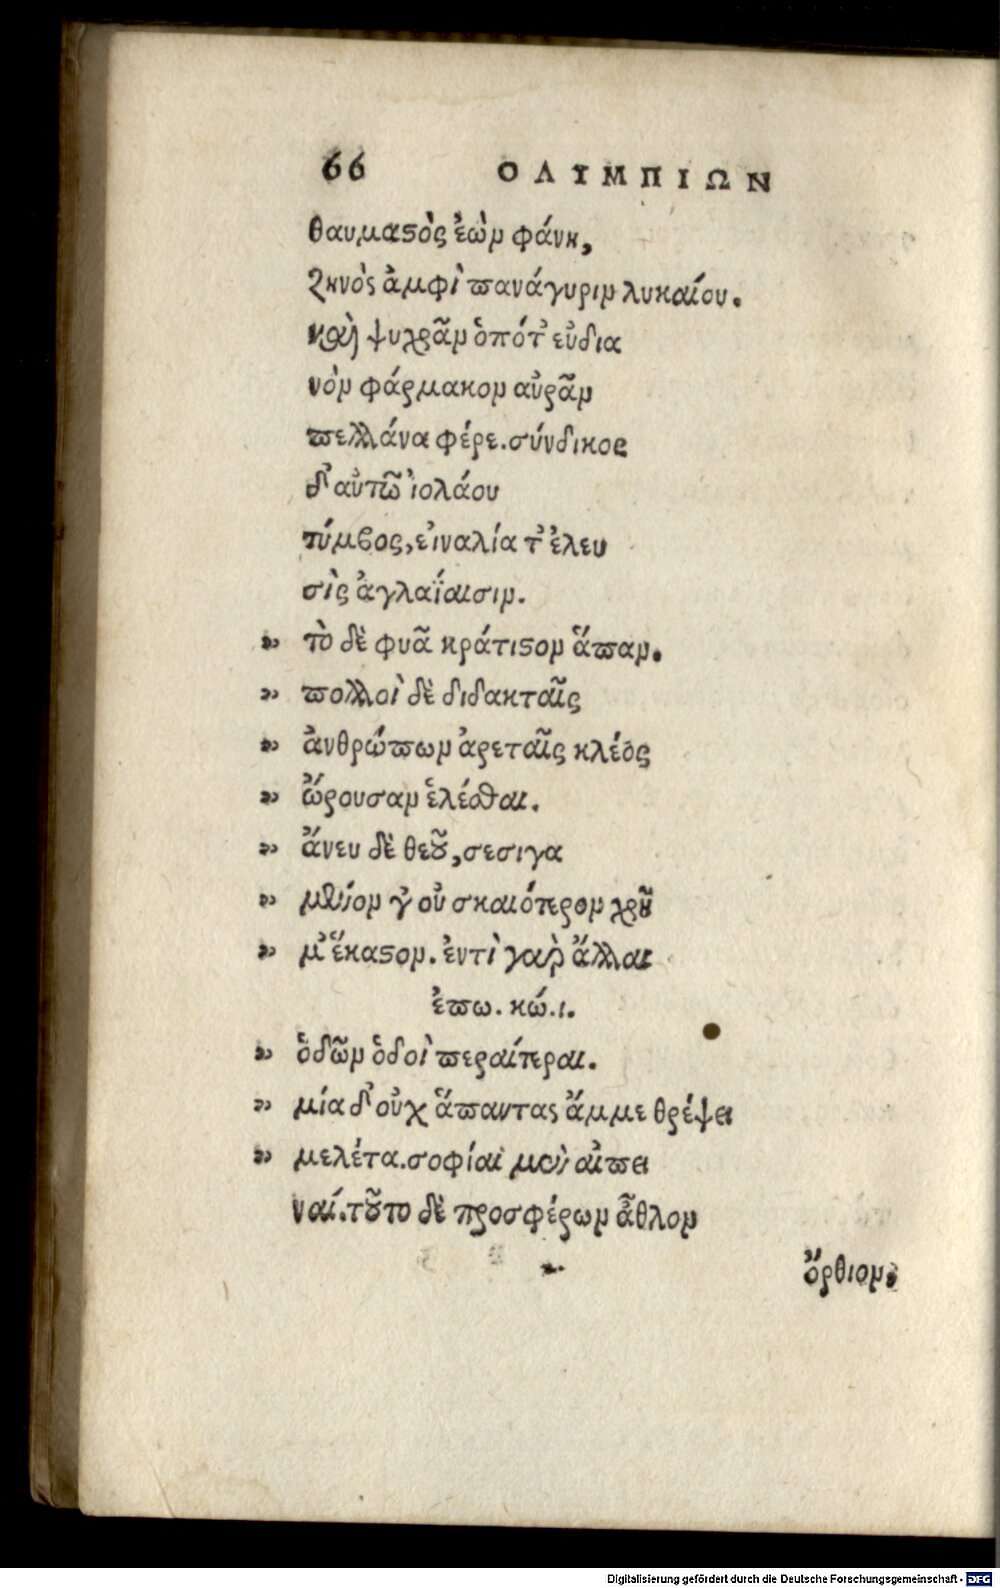 66 ΟΛΥΜΠΙΩΝ
θαυμαϛὸς ἐὼν φάνη,
Ζηνὸς ἀμφὶ πανάγυριν λυκαίου.
καὶ ψυχρᾶν ὁπότ' εὐδια
νὸν φάρμακον αὐρᾶν
πελλάνα φέρε. σύνδικος
δ' αὐτῶ ἰολάου
τύμβος, εἰναλία τ' ἐλευ
σὶς ἀγλαΐαισιν.
» τὸ δὲ φυᾶ κράτιϛον ἅπαν.
» πολλοὶ δὲ διδακταῖς
» ἀνθρώπων ἀρεταῖς κλέος
» ὤρουσαν ἑλέσθαι.
» ἄνευ δὲ θεοῦ, σεσιγα
» μένον γ' οὐ σκαιότερον χρῆ
» μ' ἕκαϛον. ἐντὶ γαρ ἄλλαι
ἐπω. κώ. ι.
» ὁδῶν ὁδοὶ περαίτεραι.
» μία δ' οὐχ ἅπαντας ἄμμε θρέψει
» μελέτα. σοφίαι μὲν αἰπει
ναί. τοῦτο δὲ προσφέρων ἆθλον
ὄρθιον,
Digitalisierung gefördert durch die Deutsche Forschungsgemeinschaft - DFG